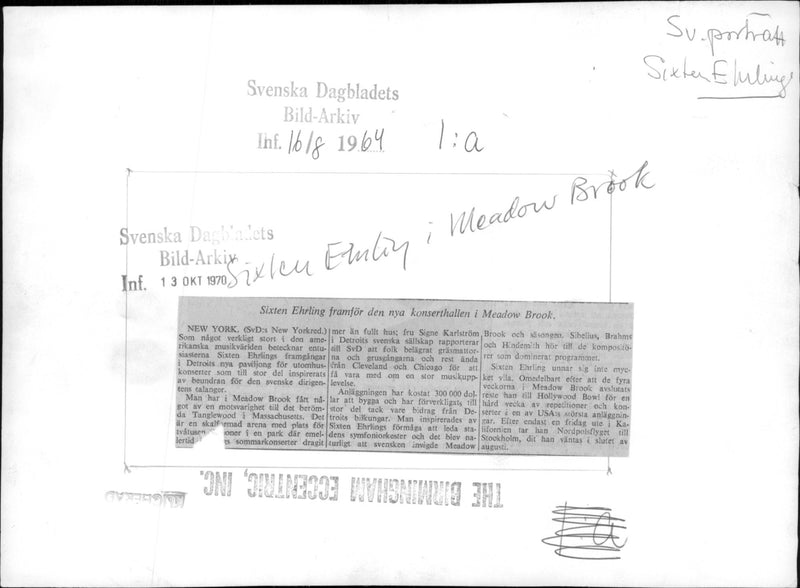 Sv. porträtt
Sixten Ehrling
Svenska Dagbladets
Bild-Arkiv
Inf. 16/8 1964
1:a
Sixten Ehrling i Meadow Brook
Svenska Dagbladets
Bild-Arkiv
Inf. 13 OKT 1970
Sixten Ehrling framför den nya konserthallen i Meadow Brook.
NEW YORK. (SvD:s New Yorkred.)
Som något verkligt stort i den ame-
rikanska musikvärlden betecknar entu-
siasterna Sixten Ehrlings framgångar
i Detroits nya paviljong för utomhus-
konserter som till stor del inspirerats
av beundran för den svenske dirigen-
tens talanger.
Man har i Meadow Brook fått nå-
got av en motsvarighet till det beröm-
da Tanglewood i Massachusetts. Det
är en skalformad arena med plats för
tvåtusen oner i en park där emel-
lertid s sommarkonserter dragit
mer än fullt hus; fru Signe Karlström
i Detroits svenska sällskap rapporterar
till SvD att folk belägrat gräsmattor-
na och grusgångarna och rest ända
från Cleveland och Chicago för att
få vara med om en stor musikupp-
levelse.
Anläggningen har kostat 300 000 dol-
lar att bygga och har förverkligats till
stor del tack vare bidrag från De-
troits bilkungar. Man inspirerades av
Sixten Ehrlings förmåga att leda sta-
dens symfoniorkester och det blev na-
turligt att svensken invigde Meadow
Brook och säsongen. Sibelius, Brahms
och Hindemith hör till de kompositö-
rer som dominerat programmet.
Sixten Ehrling unnar sig inte myc-
ket vila. Omedelbart efter att de fyra
veckorna i Meadow Brook avslutats
reste han till Hollywood Bowl för en
hård vecka av repetitioner och kon-
serter i en av USA:s största anläggnin-
gar. Efter endast en fridag ute i Ka-
lifornien tar han Nordpolsflyget till
Stockholm, dit han väntas i slutet av
augusti.
THE BIRMINGHAM ECCENTRIC, INC.
:a